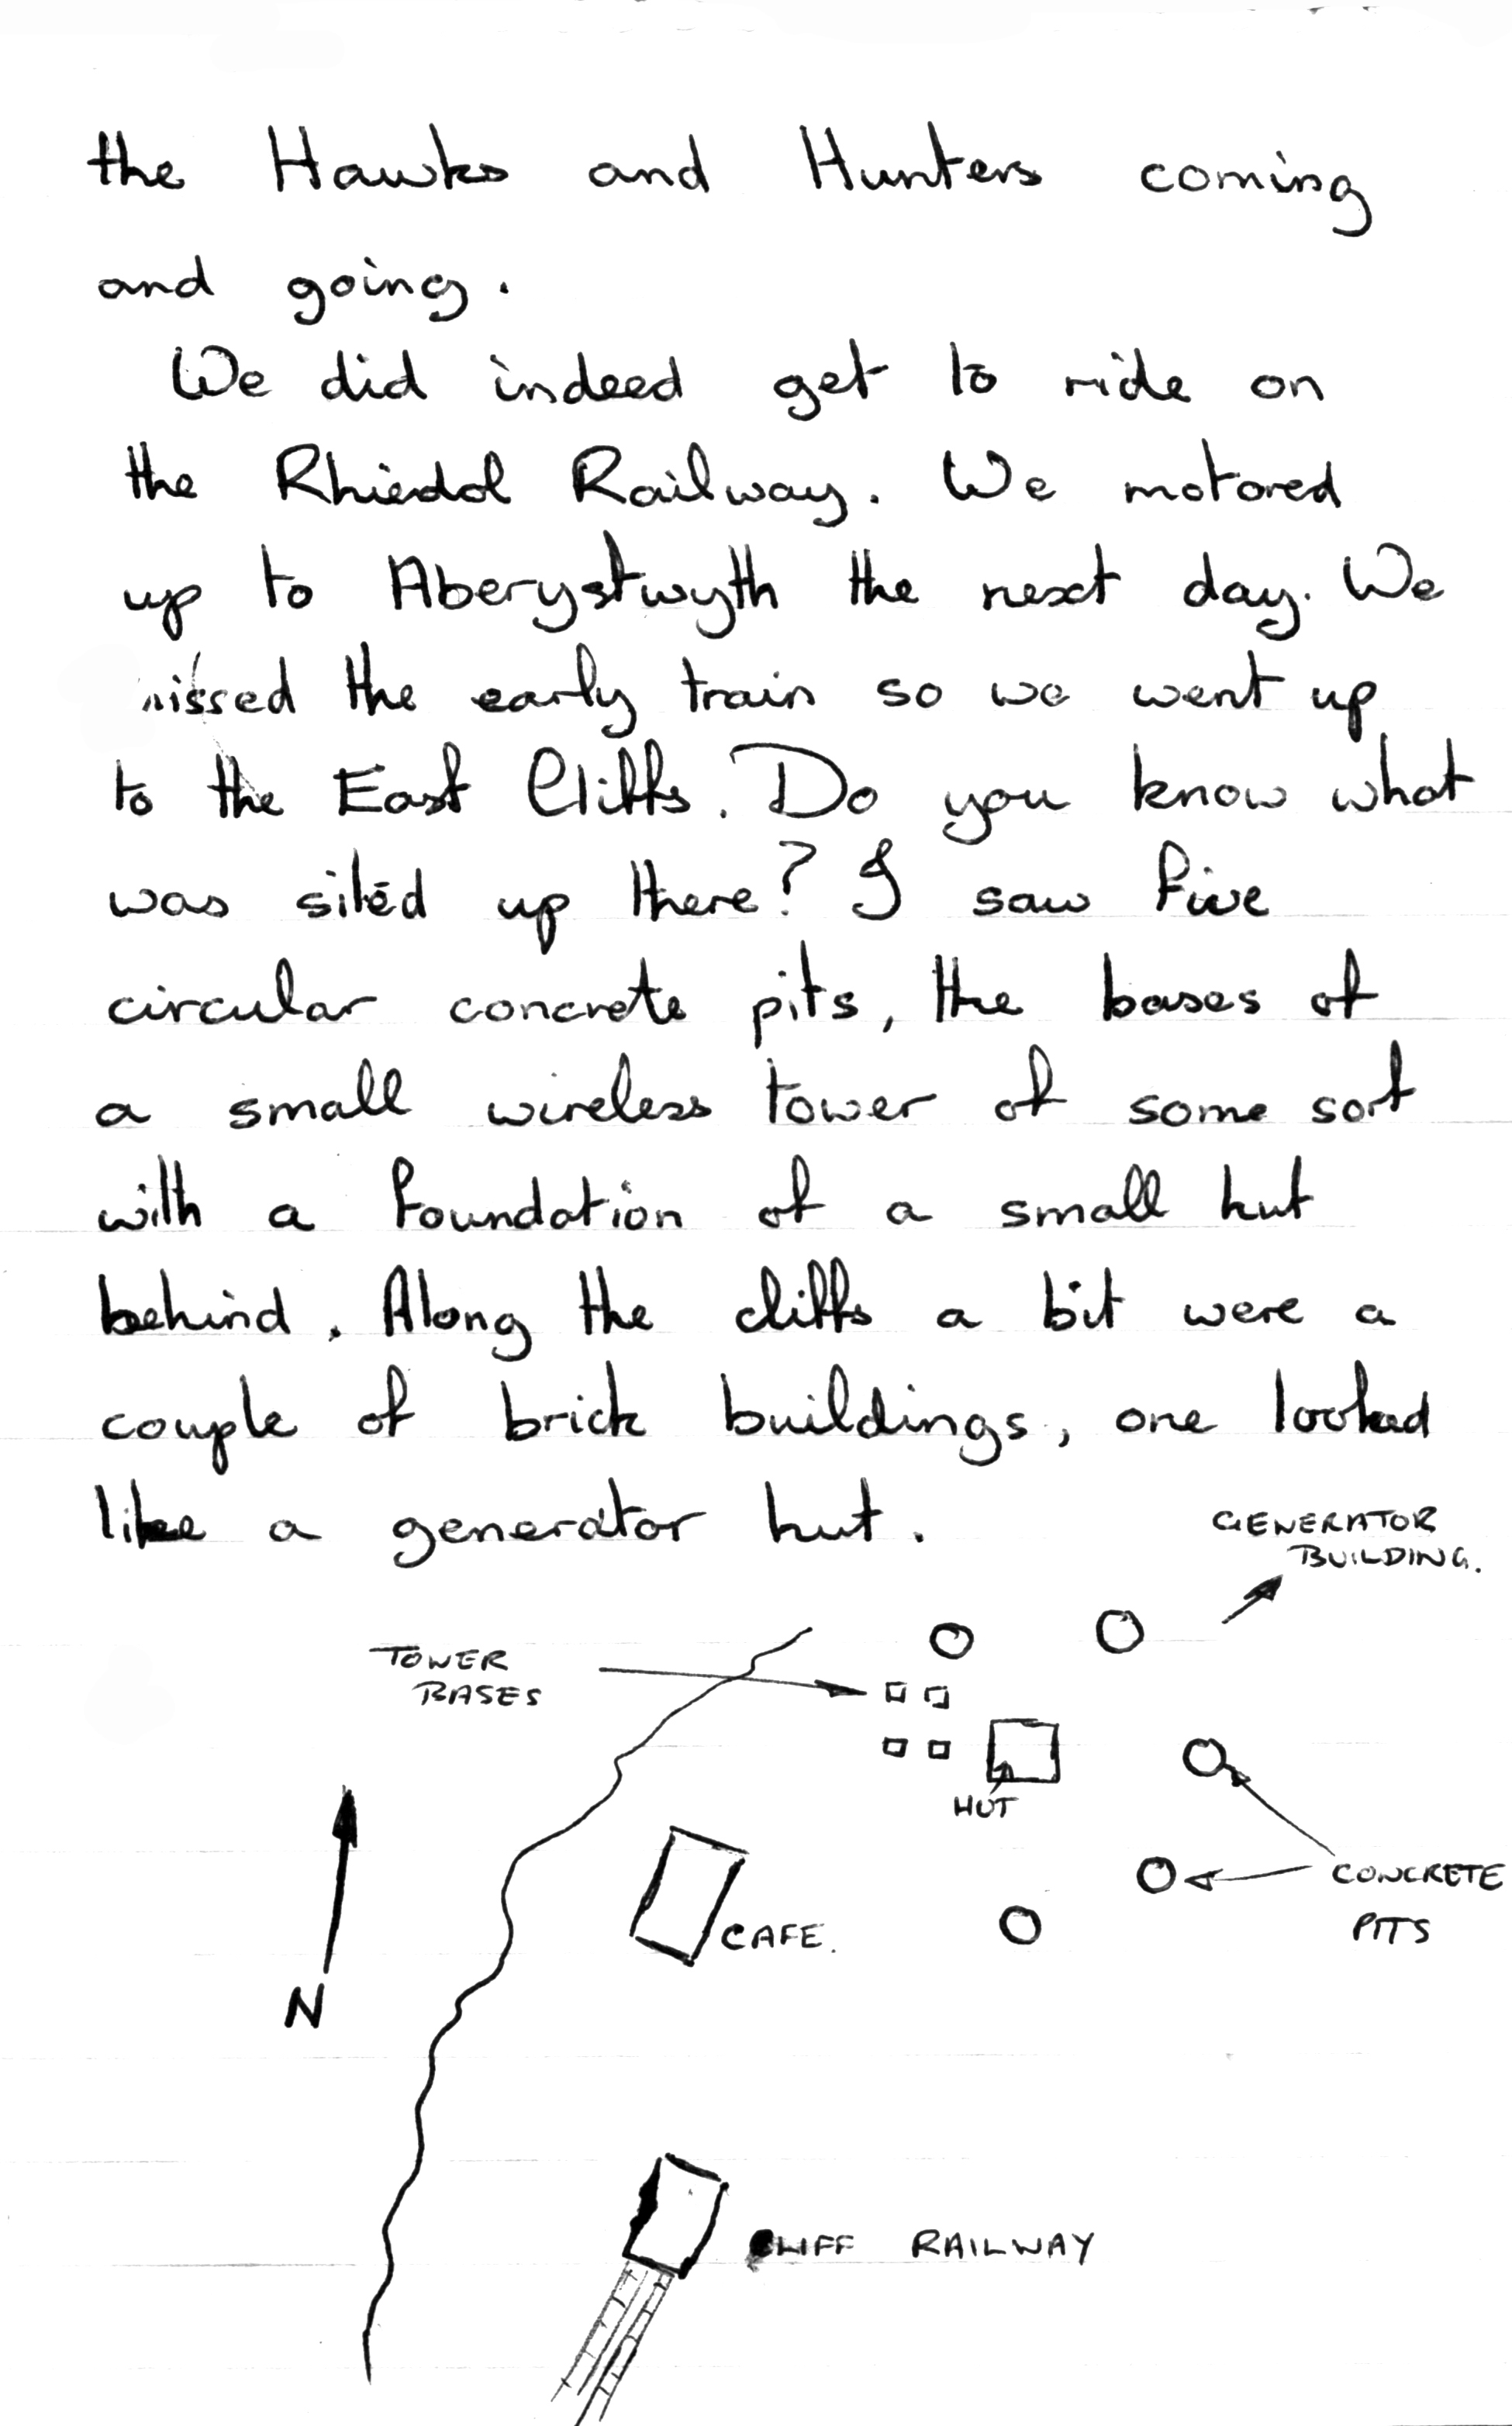 the Hawks and Hunters coming
and going.
We did indeed get to ride on
the Rhiedol Railway. We motored
up to Aberystwyth the next day. We
missed the early train so we went up
to the East Cliffs. Do you know what
was sited up there? I saw five
circular concrete pits, the bases of
a small wireless tower of some sort
with a foundation of a small hut
behind. Along the cliffs a bit were a
couple of brick buildings, one looked
like a generator hut.
GENERATOR
BUILDING.
TOWER
BASES
HUT
CONCRETE
PITS
CAFE.
N
CLIFF RAILWAY